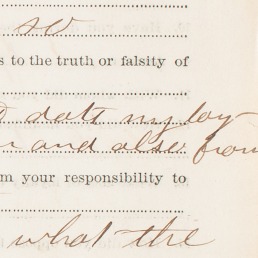 so
s to the truth or falsity of
date my loy-
and also from
m your responsibility to
what the